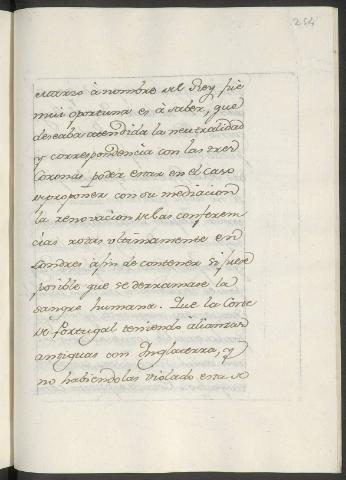 254
Marzo à nombre del Rey fué
mui oportuna es à saber, que
deseaba atendida la neutralidad
y correspondencia con las tres
Coronas poder estar en el caso
de proponer con su mediacion
la renovacion de las conferen
cias rotas ultimamente en
Londres à fin de contener si fuese
posible que se derramase la
sangre humana. Que la Corte
de Portugal teniendo alianzas
antiguas con Inglaterra, y
no habiendolas violado esta se